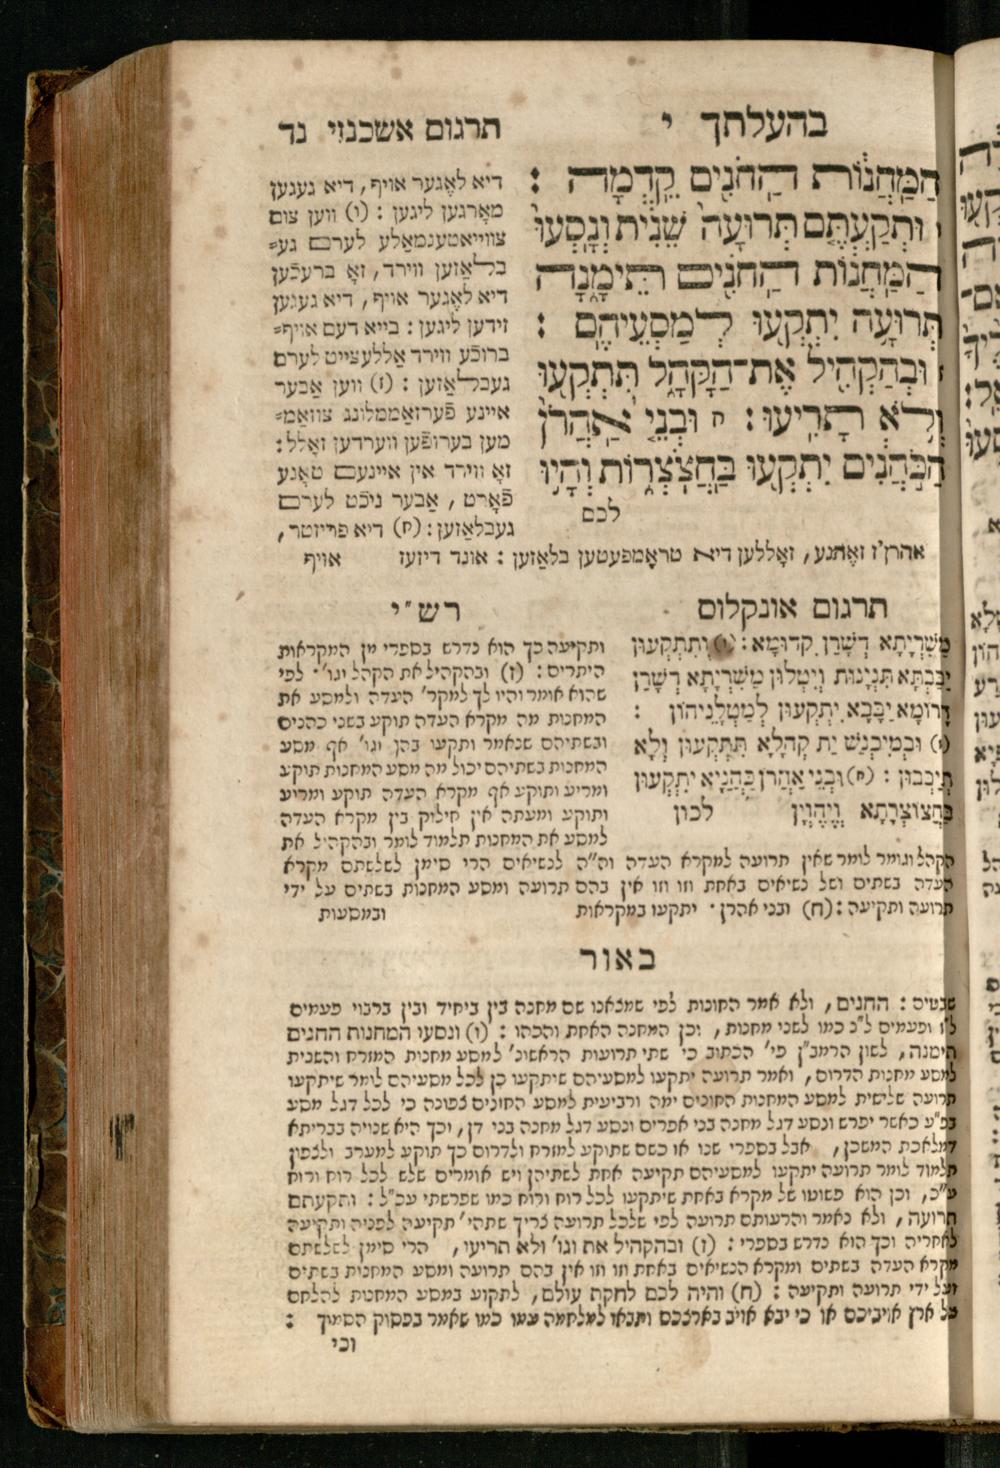 בהעלתך י
תרגום אשכנזי נד
הַמַּחֲנוֹת הַחֹנִים קֵדְמָה :
ו וּתְקַעְתֶּם תְּרוּעָה שֵׁנִית וְנָסְעוּ
הַמַּחֲנוֹת הַחֹנִים תֵּימָנָה
תְּרוּעָה יִתְקְעוּ לְמַסְעֵיהֶם :
ז וּבְהַקְהִיל אֶת־הַקָּהָל תִּתְקְעוּ
וְלֹא תָרִיעוּ : ח וּבְנֵי אַהֲרֹן
הַכֹּהֲנִים יִתְקְעוּ בַּחֲצֹצְרוֹת וְהָיוּ
לכם
דיא לאֶגער אויף, דיא געגען
מאָרגען ליגען : (ו) ווען צום
צווייאטענמאַלע לערם גע=
בלאַזען ווירד, זאָ ברעכֿען
דיא לאֶגער אויף, דיא געגען
זידען ליגען : בייא דעם אויף=
ברוכֿע ווירד אַללעצייט לערם
געבלאַזען : (ז) ווען אַבער
איינע פֿערזאַממלונג צוזאַמ=
מען בערופֿען ווערדען זאָלל :
זאָ ווירד אין איינעם טאָנע
פֿאָרט, אַבער ניכֿט לערם
געבלאַזען : (ח) דיא פריזטר,
אהרן'ז זאֶהנע, זאָללען דיא טראָמפעטען בלאַזען : אונד דיזעז אויף
תרגום אונקלוס
מַשִׁרְיָתָא דְשָׁרַן קִדוּמָא : (ו) וְתִתְקְעוּן
יַבַּבְתָּא תִּנְיָנוּת וְיִטְלוּן מַשִׁרְיָתָא דְשָׁרַן
דָּרוֹמָא יַבָּבָא יִתְקְעוּן לְמַטְלָנֵיהוֹן :
(ז) וּבְמִיכְנַשׁ יַת קְהָלָא תִּתְקְעוּן וְלָא
תְיַבְּבוּן : (ח) וּבְנֵי אַהֲרֹן כַּהֲנַיָּא יִתְקְעוּן
בַּחֲצוֹצְרָתָא וִיהֶוְיָן לכון
רש"י
ותקיעה כך הוא נדרש בספרי מן המקראות
היתרים : (ז) ובהקהיל את הקהל וגו'. לפי
שהוא אומר והיו לך למקר' העדה ולמסע את
המחנות מה מקרא העדה תוקע בשני כהנים
ובשתיהם שנאמר ותקעו בהן וגו' אף מסע
המחנות בשתיהם יכול מה מסע המחנות תוקע
ומריע ותוקע אף מקרא העדה תוקע ומריע
ותוקע ומעתה אין חילוק בין מקרא העדה
למסע את המחנות תלמוד לומר ובהקהיל את
הקהל וגומר לומר שאין תרועה למקרא העדה וה"ה לנשיאים הרי סימן לשלשתם מקרא
העדה בשתים ושל נשיאים באחת וזו וזו אין בהם תרועה ומסע המחנות בשתים על ידי
תרועה ותקיעה : (ח) ובני אהרן. יתקעו במקראות ובמסעות
באור
שבטים : החנים, ולא אמר החונות לפי שמצאנו שם מחנה בין ביחיד ובין ברבוי פעמים
ל"ז ופעמים ל"נ כמו לשני מחנות, וכן המחנה האחת והכהו : (ו) ונסעו המחנות החנים
תימנה, לשון הרמב"ן פי' הכתוב כי שתי תרועות הראשונ' למסע מחנות המזרח והשנית
למסע מחנות הדרום, ואמר תרועה יתקעו למסעיהם שיתקעו כן לכל מסעיהם לומר שיתקעו
תרועה שלישית למסע המחנות החונים ימה ורביעית למסע החונים צפונה כי לכל דגל מסע
בפ"ע כאשר יפרש ונסע דגל מחנה בני אפרים ונסע דגל מחנה בני דן, וכך היא שנויה בברייתא
דמלאכת המשכן, אבל בספרי שנו או כשם שתוקע למזרח ולדרום כך תוקע למערב ולצפון
תלמוד לומר תרועה יתקעו למסעיהם תקיעה אחת לשתיהן ויש אומרים שלש לכל רוח ורוח
ע"כ, וכן הוא פשוטו של מקרא באחת שיתקעו לכל רוח ורוח כמו שפרשתי עכ"ל : ותקעתם
תרועה, ולא נאמר והרעותם תרועה לפי שלכל תרועה צריך שתהי' תקיעה לפניה ותקיעה
לאחריה וכך הוא נדרש בספרי : (ז) ובהקהיל את וגו' ולא תריעו, הרי סימן לשלשתם
מקרא העדה בשתים ומקרא הנשיאים באחת וזו וזו אין בהם תרועה ומסע המחנות בשתים
ועל ידי תרועה ותקיעה : (ח) והיה לכם לחקת עולם, לתקוע במסע המחנות להלחם
על ארץ אויביכם או כי יבא אויב בארצכם ותצאו למלחמה עמו כמו שאמר בפסוק הסמוך :
וכי